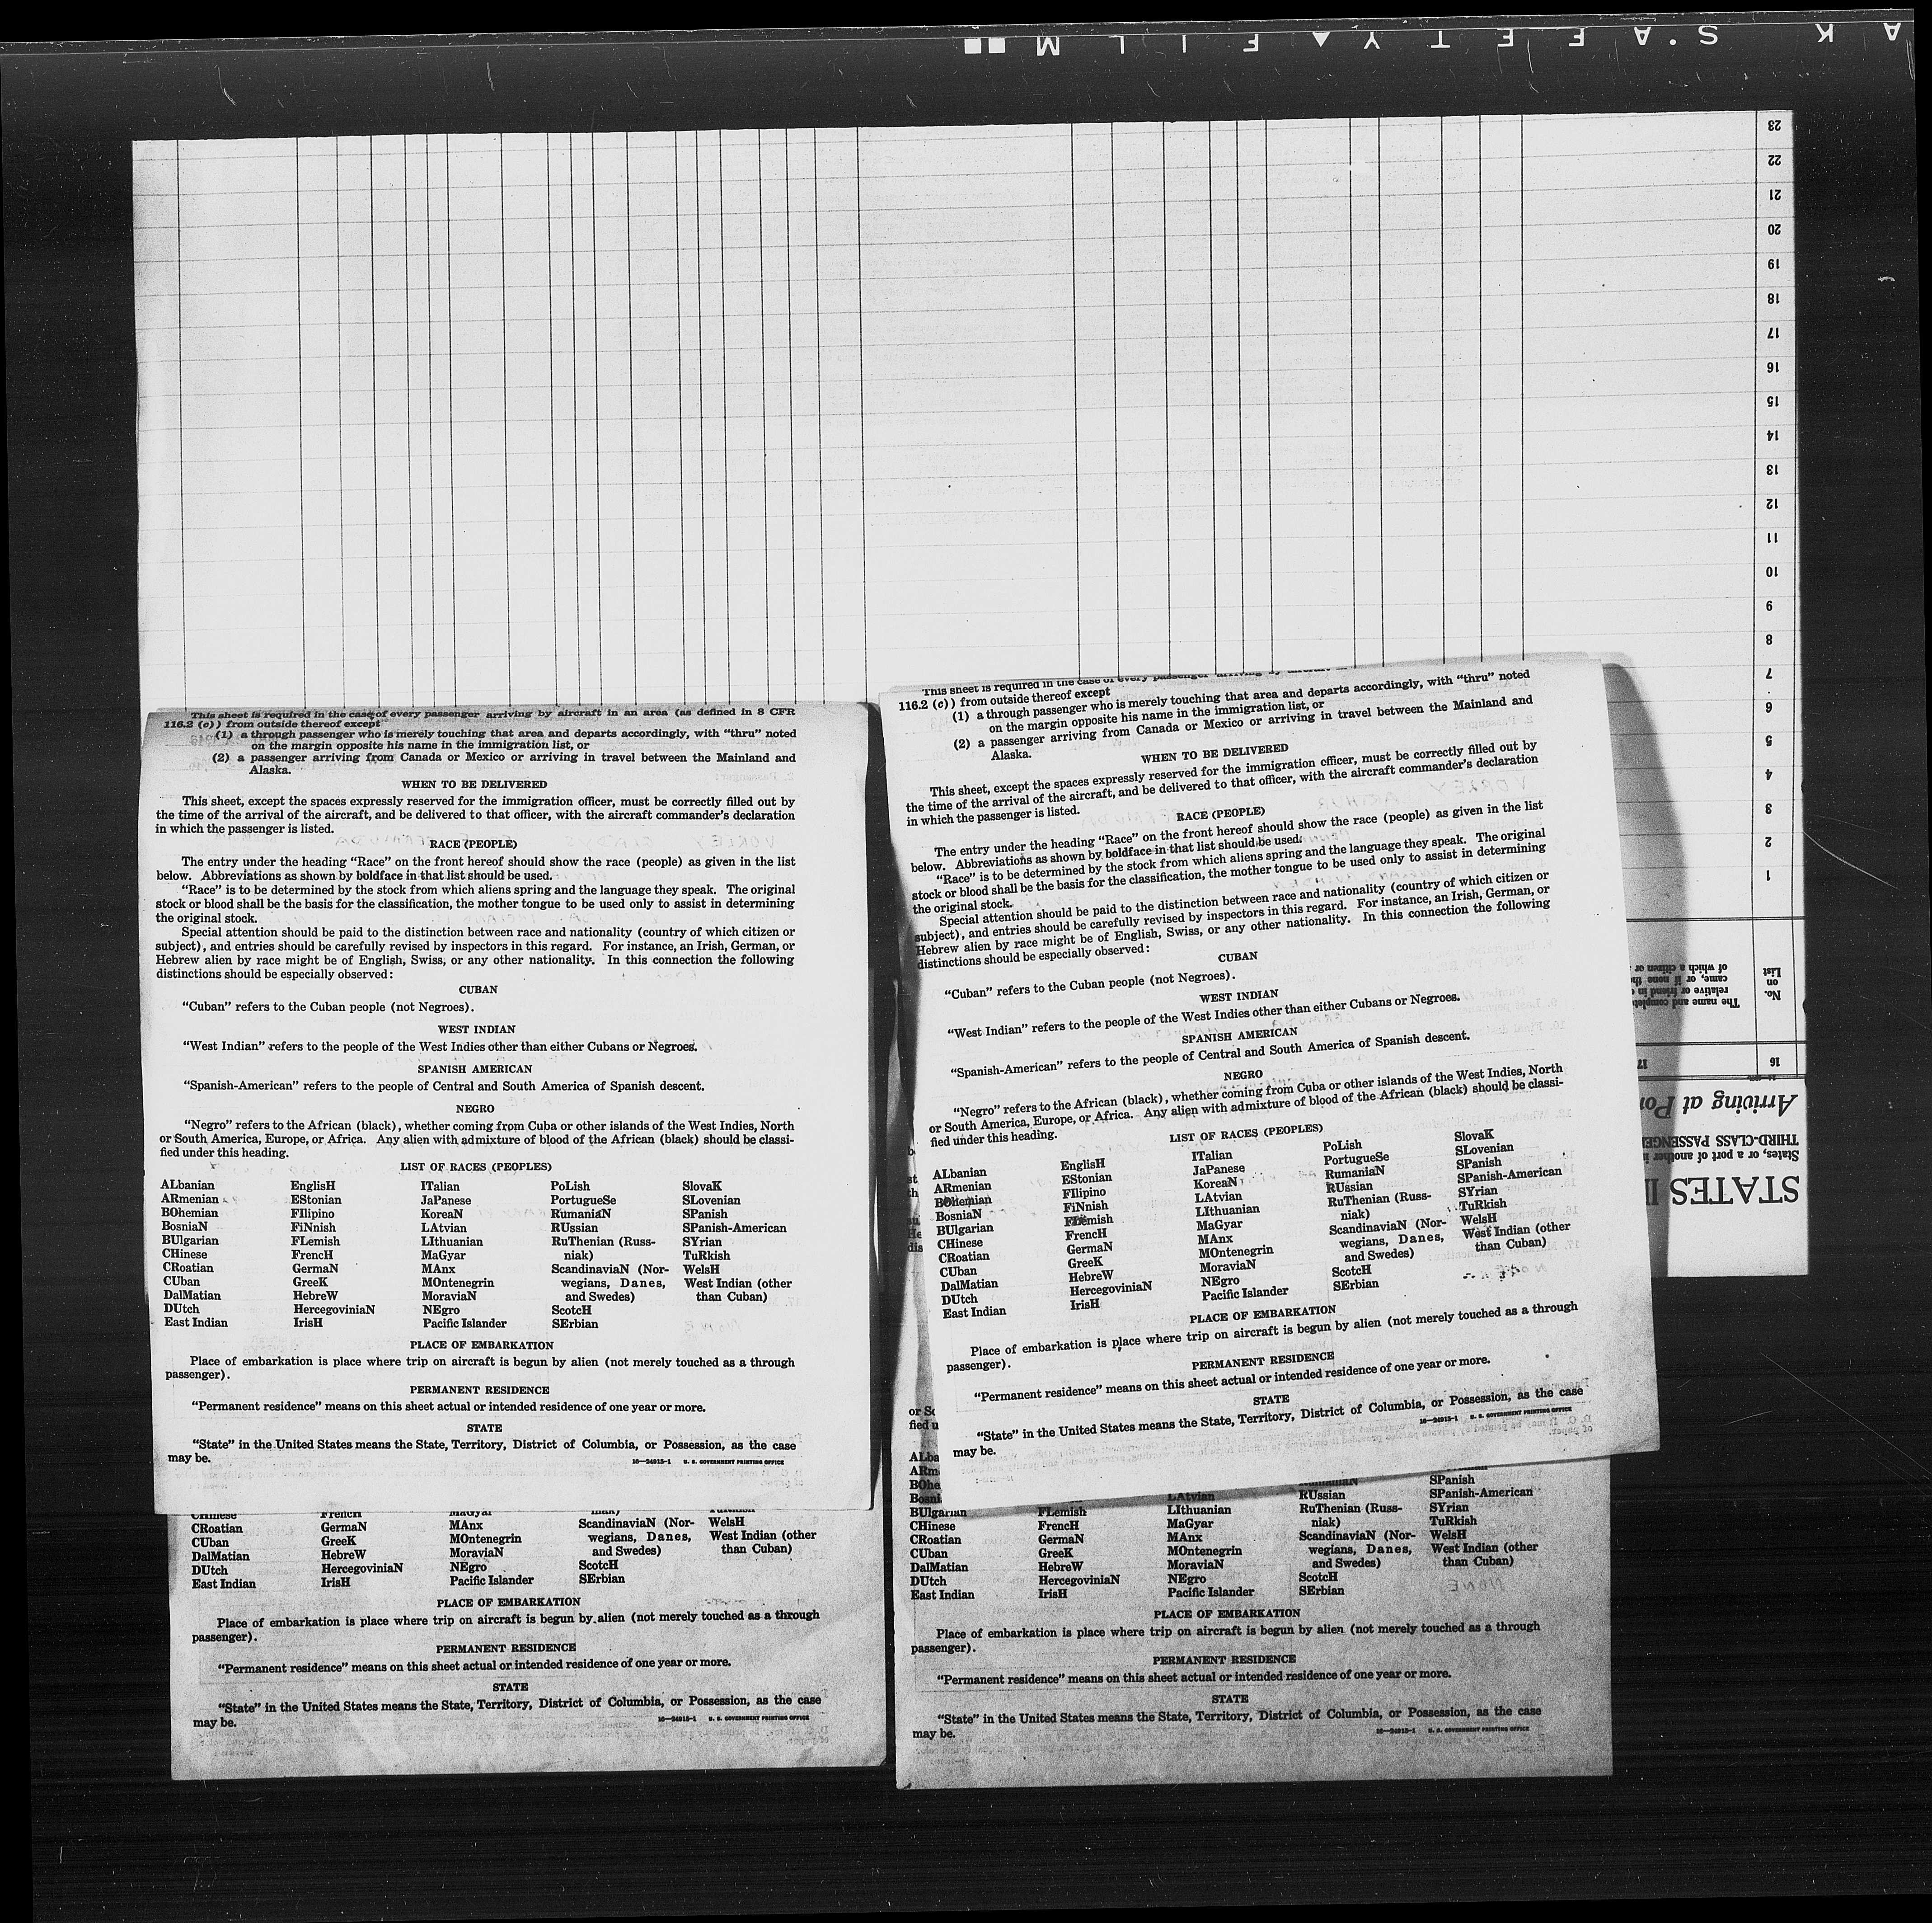 AK S·AFETY▲FILM ■■
23
22
21
20
19
18
17
16
15
14
13
12
11
10
9
8
7
6
5
4
3
2
1
No.
on
List
The name and complete
relative or friend in
came, or if none th
of which a citizen or
16
17
Arriving at Por
THIRD-CLASS PASSENGE
States, or a port of another i
STATES I
This sheet is required in the case of every passenger arriving by aircraft in an area (as defined in 8 CFR
116.2 (c)) from outside thereof except
(1) a through passenger who is merely touching that area and departs accordingly, with “thru” noted
on the margin opposite his name in the immigration list, or
(2) a passenger arriving from Canada or Mexico or arriving in travel between the Mainland and
Alaska.
WHEN TO BE DELIVERED
This sheet, except the spaces expressly reserved for the immigration officer, must be correctly filled out by
the time of the arrival of the aircraft, and be delivered to that officer, with the aircraft commander’s declaration
in which the passenger is listed.
RACE (PEOPLE)
The entry under the heading “Race” on the front hereof should show the race (people) as given in the list
below. Abbreviations as shown by boldface in that list should be used.
“Race” is to be determined by the stock from which aliens spring and the language they speak. The original
stock or blood shall be the basis for the classification, the mother tongue to be used only to assist in determining
the original stock.
Special attention should be paid to the distinction between race and nationality (country of which citizen or
subject), and entries should be carefully revised by inspectors in this regard. For instance, an Irish, German, or
Hebrew alien by race might be of English, Swiss, or any other nationality. In this connection the following
distinctions should be especially observed:
CUBAN
“Cuban” refers to the Cuban people (not Negroes).
WEST INDIAN
“West Indian” refers to the people of the West Indies other than either Cubans or Negroes.
SPANISH AMERICAN
“Spanish-American” refers to the people of Central and South America of Spanish descent.
NEGRO
“Negro” refers to the African (black), whether coming from Cuba or other islands of the West Indies, North
or South America, Europe, or Africa. Any alien with admixture of blood of the African (black) should be classi-
fied under this heading.
LIST OF RACES (PEOPLES)
ALbanian EnglisH ITalian PoLish SlovaK
ARmenian EStonian JaPanese PortugueSe SLovenian
BOhemian FIlipino KoreaN RumaniaN SPanish
BosniaN FiNnish LAtvian RUssian SPanish-American
BUlgarian FLemish LIthuanian RuThenian (Russ- SYrian
CHinese FrencH MaGyar niak) TuRkish
CRoatian GermaN MAnx ScandinaviaN (Nor- WelsH
CUban GreeK MOntenegrin wegians, Danes, West Indian (other
DalMatian HebreW MoraviaN and Swedes) than Cuban)
DUtch HercegoviniaN NEgro ScotcH
East Indian IrisH Pacific Islander SErbian
PLACE OF EMBARKATION
Place of embarkation is place where trip on aircraft is begun by alien (not merely touched as a through
passenger).
PERMANENT RESIDENCE
“Permanent residence” means on this sheet actual or intended residence of one year or more.
STATE
“State” in the United States means the State, Territory, District of Columbia, or Possession, as the case
may be.
16—24915-1 U. S. GOVERNMENT PRINTING OFFICE
CHinese FrencH MaGyar niak) TuRkish
CRoatian GermaN MAnx ScandinaviaN (Nor- WelsH
CUban GreeK MOntenegrin wegians, Danes, West Indian (other
DalMatian HebreW MoraviaN and Swedes) than Cuban)
DUtch HercegoviniaN NEgro ScotcH
East Indian IrisH Pacific Islander SErbian
PLACE OF EMBARKATION
Place of embarkation is place where trip on aircraft is begun by alien (not merely touched as a through
passenger).
PERMANENT RESIDENCE
“Permanent residence” means on this sheet actual or intended residence of one year or more.
STATE
“State” in the United States means the State, Territory, District of Columbia, or Possession, as the case
may be.
16—24915-1 U. S. GOVERNMENT PRINTING OFFICE
This sheet is required in the case of every passenger arriving by aircraft in
116.2 (c)) from outside thereof except
(1) a through passenger who is merely touching that area and departs accordingly, with “thru” noted
on the margin opposite his name in the immigration list, or
(2) a passenger arriving from Canada or Mexico or arriving in travel between the Mainland and
Alaska.
WHEN TO BE DELIVERED
This sheet, except the spaces expressly reserved for the immigration officer, must be correctly filled out by
the time of the arrival of the aircraft, and be delivered to that officer, with the aircraft commander’s declaration
in which the passenger is listed.
RACE (PEOPLE)
The entry under the heading “Race” on the front hereof should show the race (people) as given in the list
below. Abbreviations as shown by boldface in that list should be used.
“Race” is to be determined by the stock from which aliens spring and the language they speak. The original
stock or blood shall be the basis for the classification, the mother tongue to be used only to assist in determining
the original stock.
Special attention should be paid to the distinction between race and nationality (country of which citizen or
subject), and entries should be carefully revised by inspectors in this regard. For instance, an Irish, German, or
Hebrew alien by race might be of English, Swiss, or any other nationality. In this connection the following
distinctions should be especially observed:
CUBAN
“Cuban” refers to the Cuban people (not Negroes).
WEST INDIAN
“West Indian” refers to the people of the West Indies other than either Cubans or Negroes.
SPANISH AMERICAN
“Spanish-American” refers to the people of Central and South America of Spanish descent.
NEGRO
“Negro” refers to the African (black), whether coming from Cuba or other islands of the West Indies, North
or South America, Europe, or Africa. Any alien with admixture of blood of the African (black) should be classi-
fied under this heading.
LIST OF RACES (PEOPLES)
ALbanian EnglisH ITalian PoLish SlovaK
ARmenian EStonian JaPanese PortugueSe SLovenian
BOhemian FIlipino KoreaN RumaniaN SPanish
BosniaN FiNnish LAtvian RUssian SPanish-American
BUlgarian FLemish LIthuanian RuThenian (Russ- SYrian
CHinese FrencH MaGyar niak) TuRkish
CRoatian GermaN MAnx ScandinaviaN (Nor- WelsH
CUban GreeK MOntenegrin wegians, Danes, West Indian (other
DalMatian HebreW MoraviaN and Swedes) than Cuban)
DUtch HercegoviniaN NEgro ScotcH
East Indian IrisH Pacific Islander SErbian
PLACE OF EMBARKATION
Place of embarkation is place where trip on aircraft is begun by alien (not merely touched as a through
passenger).
PERMANENT RESIDENCE
“Permanent residence” means on this sheet actual or intended residence of one year or more.
STATE
“State” in the United States means the State, Territory, District of Columbia, or Possession, as the case
may be.
16—24915-1 U. S. GOVERNMENT PRINTING OFFICE
or So
fied u
ALba
ARm
BOhe RumaniaN SPanish
Bosni LAtvian RUssian SPanish-American
BUlgarian FLemish LIthuanian RuThenian (Russ- SYrian
CHinese FrencH MaGyar niak) TuRkish
CRoatian GermaN MAnx ScandinaviaN (Nor- WelsH
CUban GreeK MOntenegrin wegians, Danes, West Indian (other
DalMatian HebreW MoraviaN and Swedes) than Cuban)
DUtch HercegoviniaN NEgro ScotcH
East Indian IrisH Pacific Islander SErbian
PLACE OF EMBARKATION
Place of embarkation is place where trip on aircraft is begun by alien (not merely touched as a through
passenger).
PERMANENT RESIDENCE
“Permanent residence” means on this sheet actual or intended residence of one year or more.
STATE
“State” in the United States means the State, Territory, District of Columbia, or Possession, as the case
may be.
16—24915-1 U. S. GOVERNMENT PRINTING OFFICE